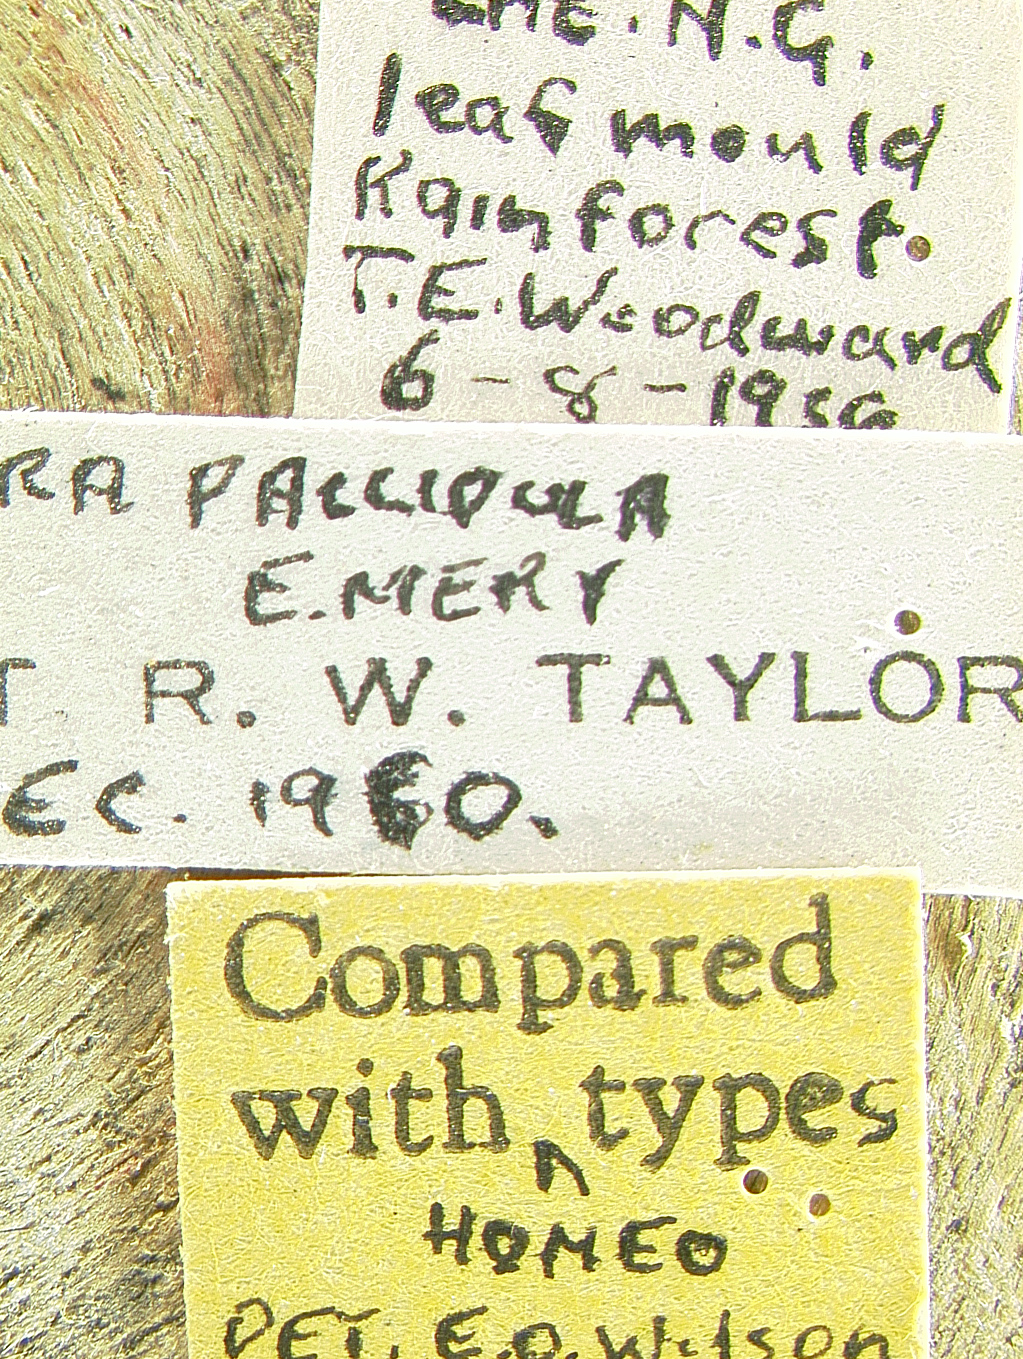 N.G.
leaf mould
Rainforest.
T.E. Woodward
6-8-1956
RA PALLIDULA
EMERY
T R. W. TAYLOR
EC. 1960.
Compared
with ^ types
HOMEO
DET. E.O. Wilson